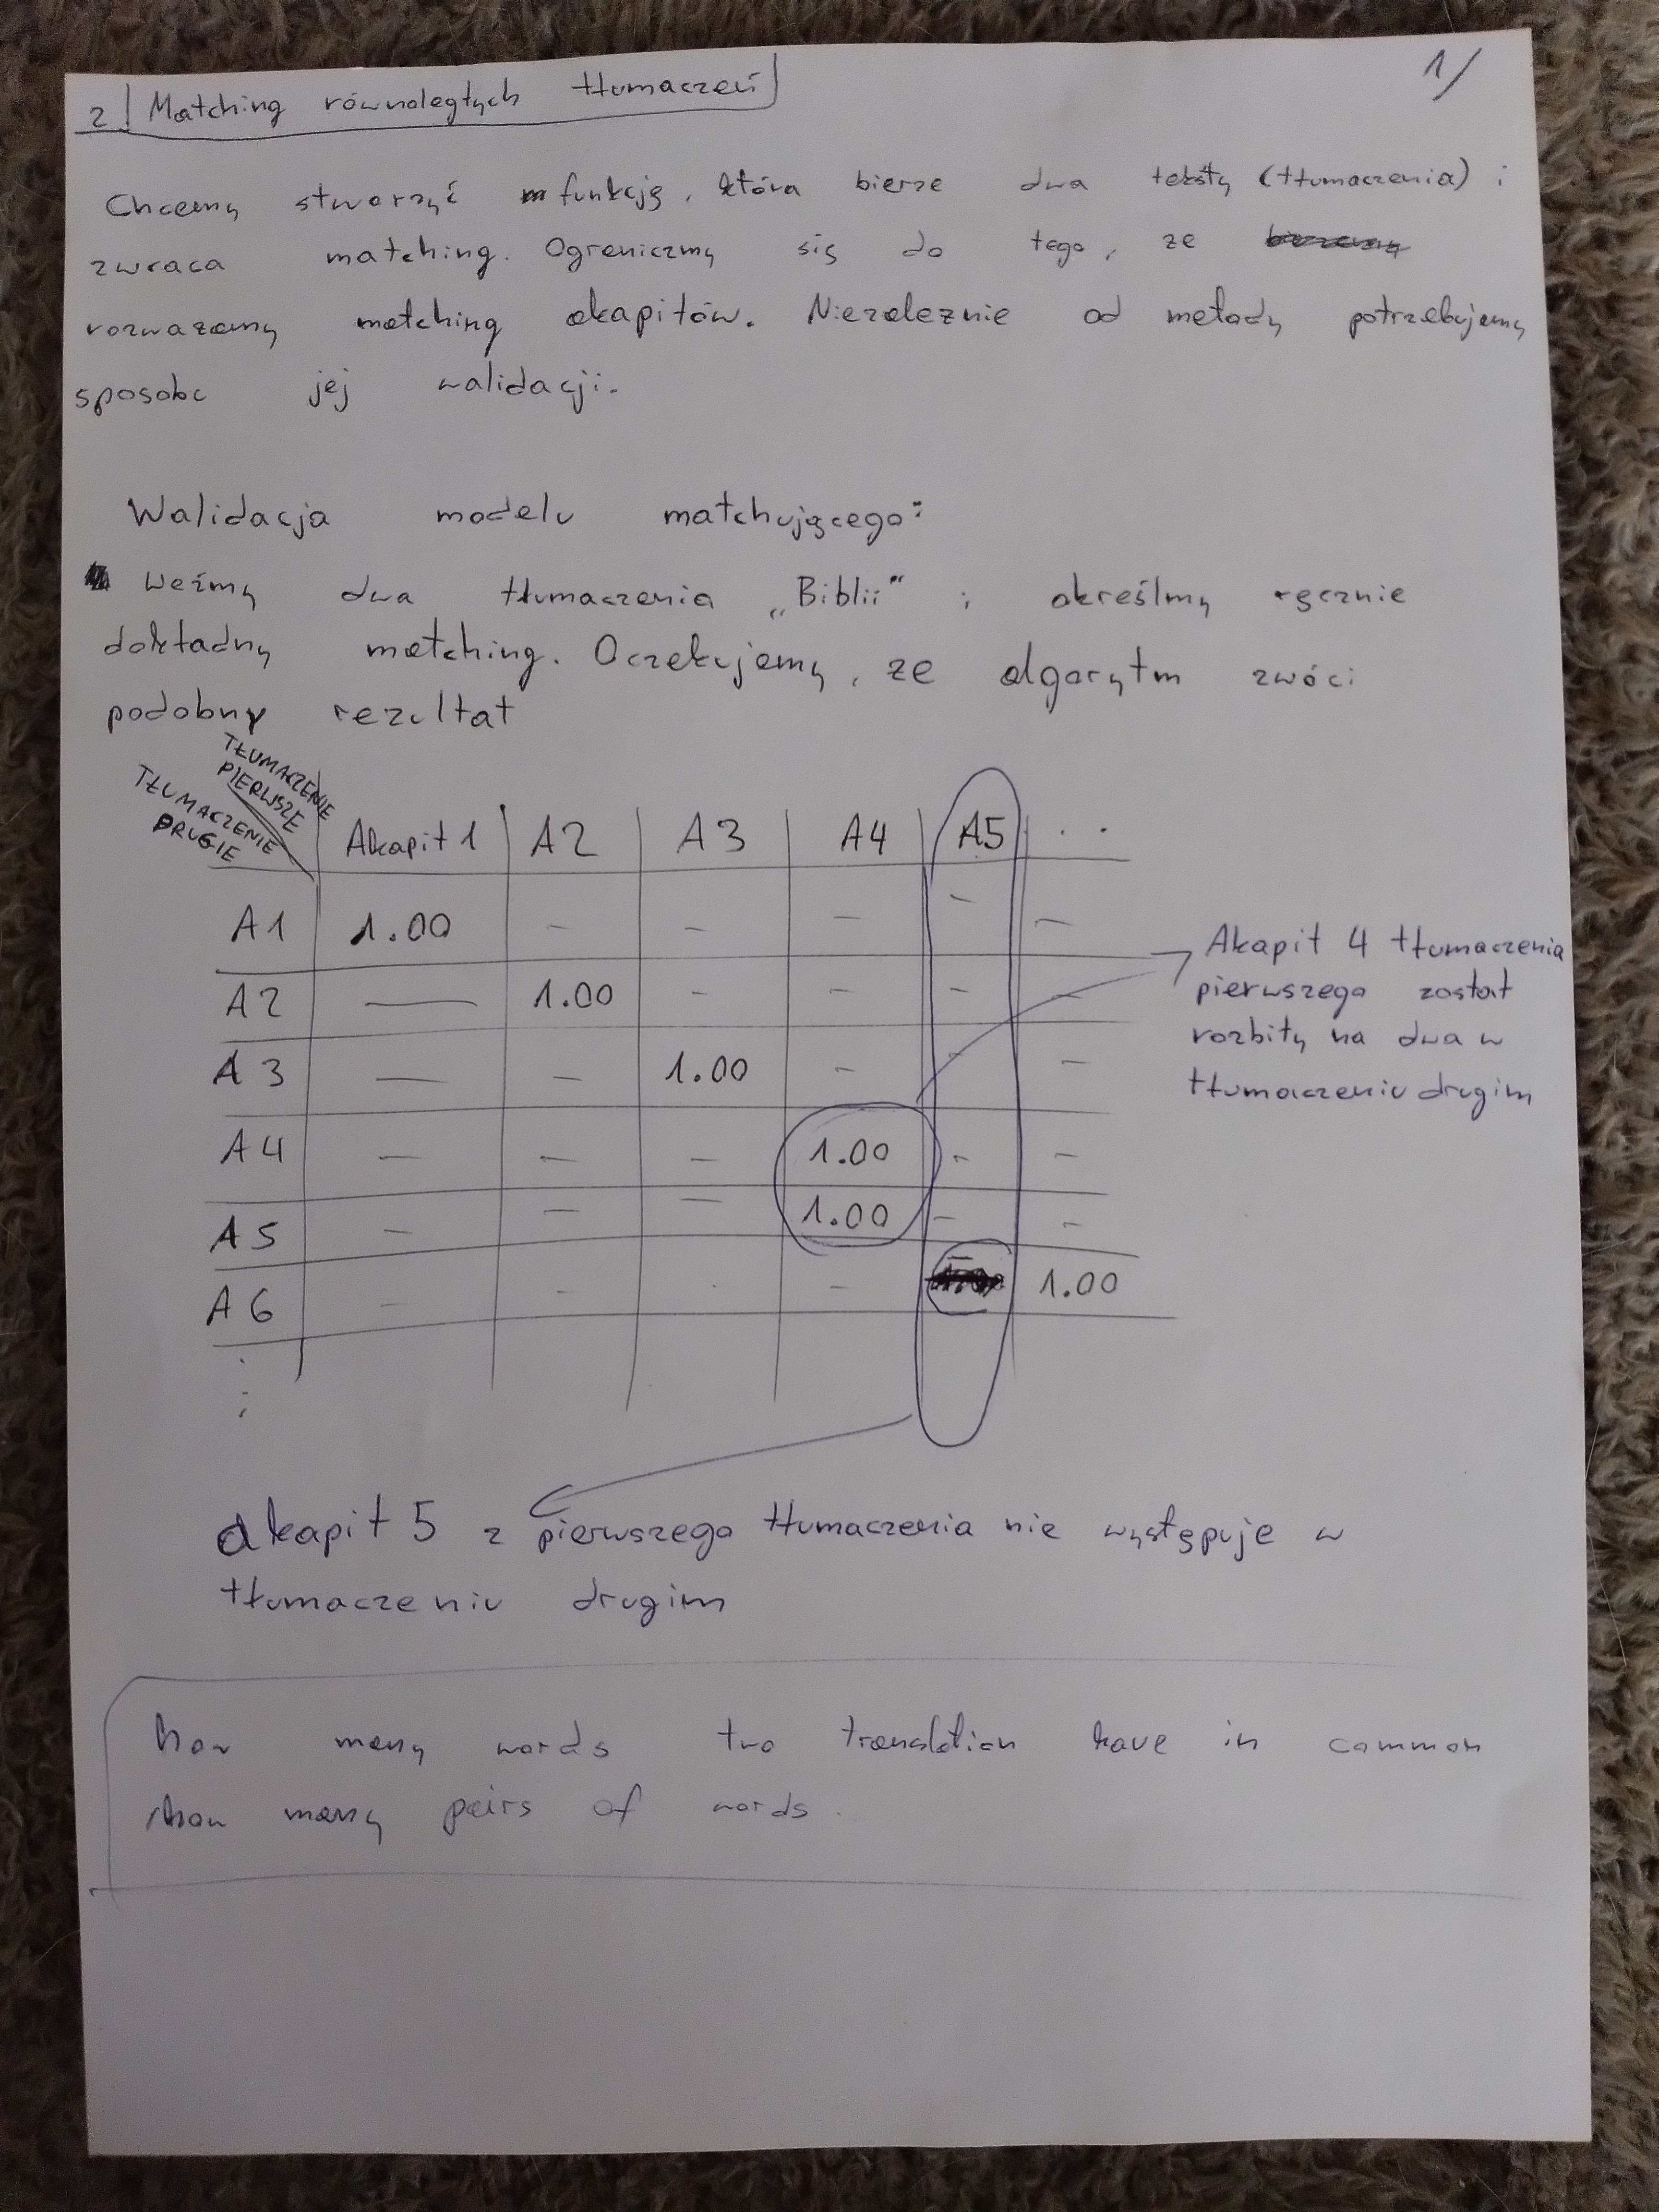 1/
2 Matching równoległych tłumaczeń
Chcemy stworzyć funkcję, która bierze dwa teksty (tłumaczenia) i
zwraca matching. Ograniczmy się do tego, ze
rozwazamy matching akapitów. Niezaleznie od metody potrzebujemy
sposobu jej walidacji.
Walidacja modelu matchującego:
Weźmy dwa tłumaczenia „Biblii" i określmy ręcznie
dokładny matching. Oczekujemy, ze algorytm zwóci
podobny rezultat
TŁUMACZENIE
PIERWSZE
TŁUMACZENIE
DRUGIE
Akapit 1 A2 A3 A4 A5 . .
A1 1.00 – – – – –
A2 – 1.00 – – – –
A3 – – 1.00 – – –
A4 – – – 1.00 – –
A5 – – – 1.00 – –
A6 – – – – 1.00
Akapit 4 tłumaczenia
pierwszego został
rozbity na dwa w
tłumaczeniu drugim
akapit 5 z pierwszego tłumaczenia nie występuje w
tłumaczeniu drugim
how many words two translation have in common
how many pairs of words.